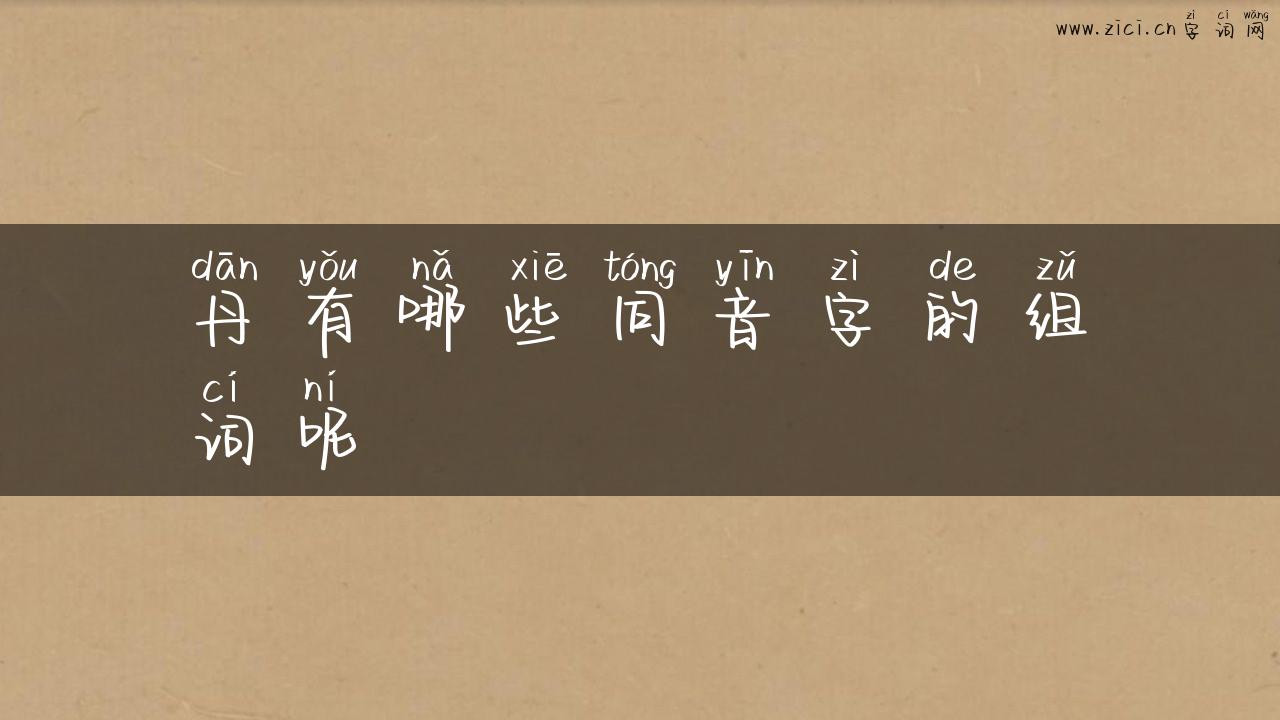 zì cí wǎng
www.zici.cn 字词网
dān yǒu nǎ xiē tóng yīn zì de zǔ
丹有哪些同音字的组
cí ní
词呢